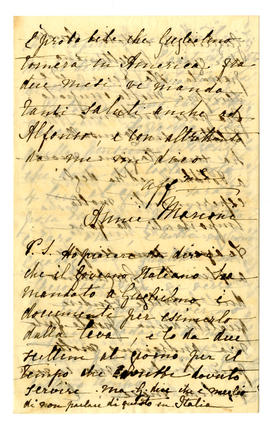 È probabile che Guglielmo
tornerà in America fra
due mesi vi manda
tanti saluti anche ad
Alfonso e con altrettanti
da me mi dico
aff
Annie Marconi
P.S. Ho piacere da dirvi
che il Governo Italiano ha
mandato a Guglielmo i
documenti per esimerlo
dalla leva, e lo da due
scellini al giorno per il
tempo che avrebbe dovuto
servire. ma G. dice che è meglio
di non parlare di questo in Italia